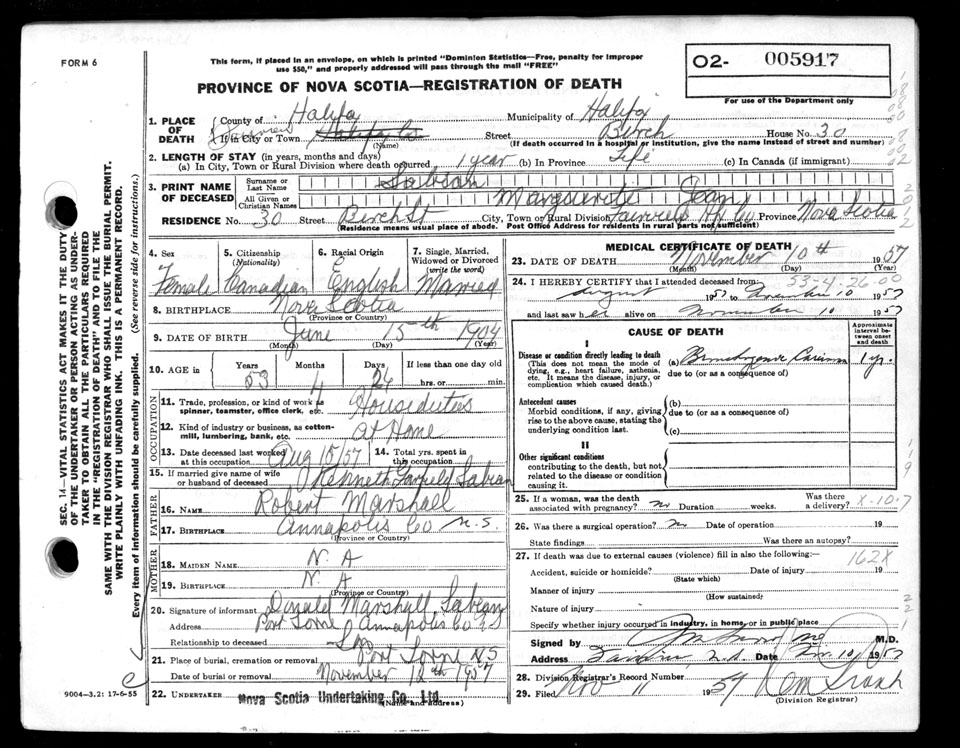 FORM 6
This form, if placed in an envelope, on which is printed "Dominion Statistics—Free, penalty for improper
use $50," and properly addressed will pass through the mail "FREE"
PROVINCE OF NOVA SCOTIA—REGISTRATION OF DEATH
02- 005917
For use of the Department only
1. PLACE OF DEATH
County of Halifax Municipality of Halifax
If in City or Town Halifax Co Street Birch House No. 30
(Name) (If death occurred in a hospital or institution, give the name Instead of street and number)
2. LENGTH OF STAY (in years, months and days)
(a) In City, Town or Rural Division where death occurred, 1 year (b) In Province Life (c) In Canada (if immigrant)
3. PRINT NAME OF DECEASED
Surname or Last Name Sabean
All Given or Christian Names Marguerite Jean
RESIDENCE No. 30 Street Birch St City, Town or Rural Division Fairview Hfx Co Province Nova Scotia
(Residence means usual place of abode. Post Office Address for residents in rural parts not sufficient)
4. Sex Female
5. Citizenship (Nationality) Canadian
6. Racial Origin E English
7. Single, Married, Widowed or Divorced (write the word) Married
8. BIRTHPLACE Nova Scotia
(Province or Country)
9. DATE OF BIRTH June 15th 1904
(Month) (Day) (Year)
10. AGE in Years 53 Months 4 Days 26 If less than one day old
hrs. or min.
OCCUPATION
11. Trade, profession, or kind of work as
spinner, teamster, office clerk, etc. House duties
12. Kind of industry or business, as cotton-
mill, lumbering, bank, etc. At Home
13. Date deceased last worked at this occupation Aug 15/57
14. Total yrs. spent in this occupation
15. If married give name of wife
or husband of deceased Kenneth Garfield Sabean
FATHER
16. NAME Robert Marshall
17. BIRTHPLACE Annapolis Co N.S.
(Province or Country)
MOTHER
18. MAIDEN NAME N. A
19. BIRTHPLACE N. A
(Province or Country)
20. Signature of informant Donald Marshall Sabean
Address Port Lorne Annapolis Co N S
Relationship to deceased Son
21. Place of burial, cremation or removal Port Lorne N.S
Date of burial or removal November 12th 1957
22. UNDERTAKER Nova Scotia Undertaking Co. Ltd.
(Name and address)
9004-3.2: 17-6-55
MEDICAL CERTIFICATE OF DEATH
23. DATE OF DEATH November 10th 1957
(Month) (Day) (Year)
53-4-26-00
24. I HEREBY CERTIFY that I attended deceased from:
August 1957 to November 10 1957
and last saw her alive on November 10 1957
CAUSE OF DEATH
Approximate interval between onset and death
I
Disease or condition directly leading to death
(This does not mean the mode of
dying, e.g., heart failure, asthenia,
etc. It means the disease, injury, or
complication which caused death.)
(a) Bronchogenic Carcinoma 1 yr.
due to (or as a consequence of)
Antecedent causes
Morbid conditions, if any, giving
rise to the above cause, stating the
underlying condition last.
(b)
due to (or as a consequence of)
(c)
II
Other significant conditions
contributing to the death, but not
related to the disease or condition
causing it.
25. If a woman, was the death
associated with pregnancy? no Duration weeks. Was there a delivery?
X-10-7
26. Was there a surgical operation? no Date of operation 19
State findings Was there an autopsy?
27. If death was due to external causes (violence) fill in also the following:
162X
Accident, suicide or homicide? Date of injury 19
(State which)
Manner of injury
(How sustained)
Nature of injury
Specify whether injury occurred in industry, in home, or in public place
Signed by M.D.
Address Fairview, N.S. Date Nov. 10 1957
28. Division Registrar's Record Number
29. Filed Nov 11 1957
(Division Registrar)
SEC. 14—VITAL STATISTICS ACT MAKES IT THE DUTY
OF THE UNDERTAKER OR PERSON ACTING AS UNDER-
TAKER TO OBTAIN ALL THE PARTICULARS REQUIRED
IN THE "REGISTRATION OF DEATH" AND TO FILE THE
SAME WITH THE DIVISION REGISTRAR WHO SHALL ISSUE THE BURIAL PERMIT.
WRITE PLAINLY WITH UNFADING INK. THIS IS A PERMANENT RECORD.
Every item of information should be carefully supplied. (See reverse side for instructions.)